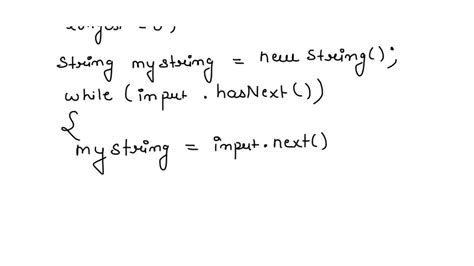 = 0;
String mystring = new String();
while (input . hasNext())
{
mystring = input.next()